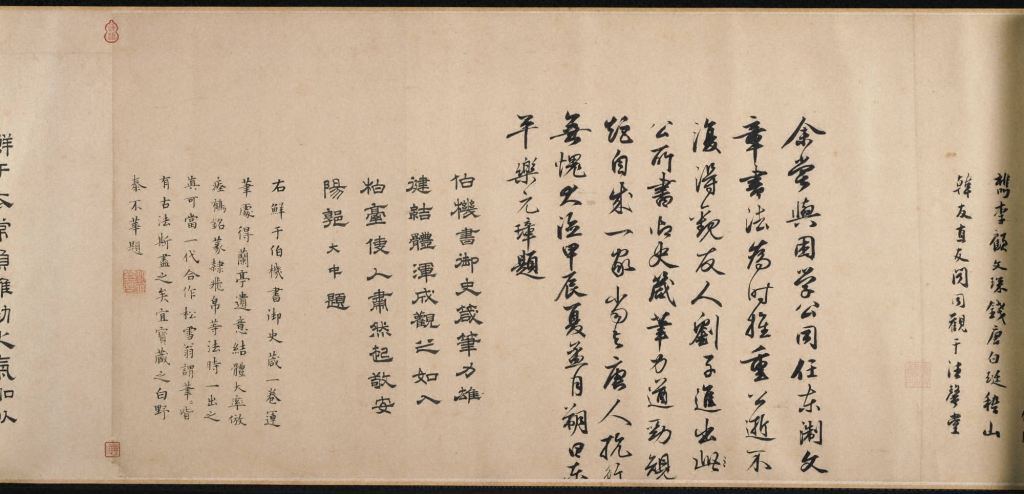 檇李顧文琛錢唐白珽嵇山
韓友直友聞同觀于浩馨堂
余嘗與困學公同任東淛文
章書法為時推重公逝不
復得觀友人劉子進出此
公所書御史箴筆力遒勁規
矩自成一家尚與唐人抗行
無愧大德甲辰夏孟月朔日東
平樂元璋題
伯機書御史箴筆力雄
健結體渾成觀之如入
柏臺使人肅然起敬安
陽郭大中題
右鮮于伯機書御史箴一卷運
筆處得蘭亭遺意結體大率倣
瘞鶴銘篆隸飛帛等法時一出之
真可當一代合作松雪翁謂筆筆皆
有古法斯盡之矣宜寶藏之白野
泰不華題
鮮于太常